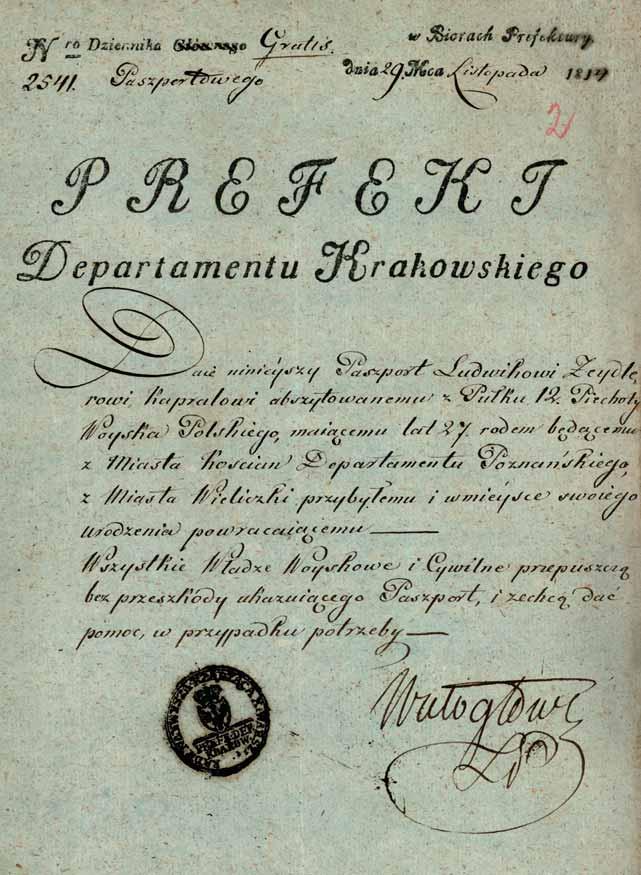 Nro Dziennika Głównego Gratis. w Biórach Prefektury
2541. Paszportowego dnia 29 Mca Listopada 1814
2
PREFEKT
Departamentu Krakowskiego
Daie ninieyszy Paszport Ludwikowi Zeydle
rowi Kapralowi abszytowanemu z Pułku 12. Piechoty
Woyska Polskiego, maiącemu lat 27. rodem będącemu
z Miasta Kościan Departamentu Poznańskiego,
z Miasta Wieliczki przybyłemu i w mieysce swoiego
urodzenia powracaiącemu —
Wszystkie Władze Woyskowe i Cywilne przepuszczą
bez przeszkody ukazuiącego Paszport, i zechcą dać
pomoc, w przypadku potrzeby —
Wielogłowski
PREF: DEP:
KRAKOW: